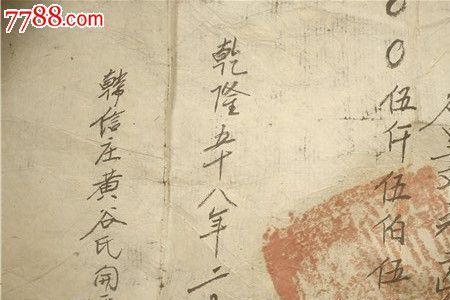 7788.com
00伍仟伍伯伍
乾隆五十八年二
韩信庄黄谷氏開